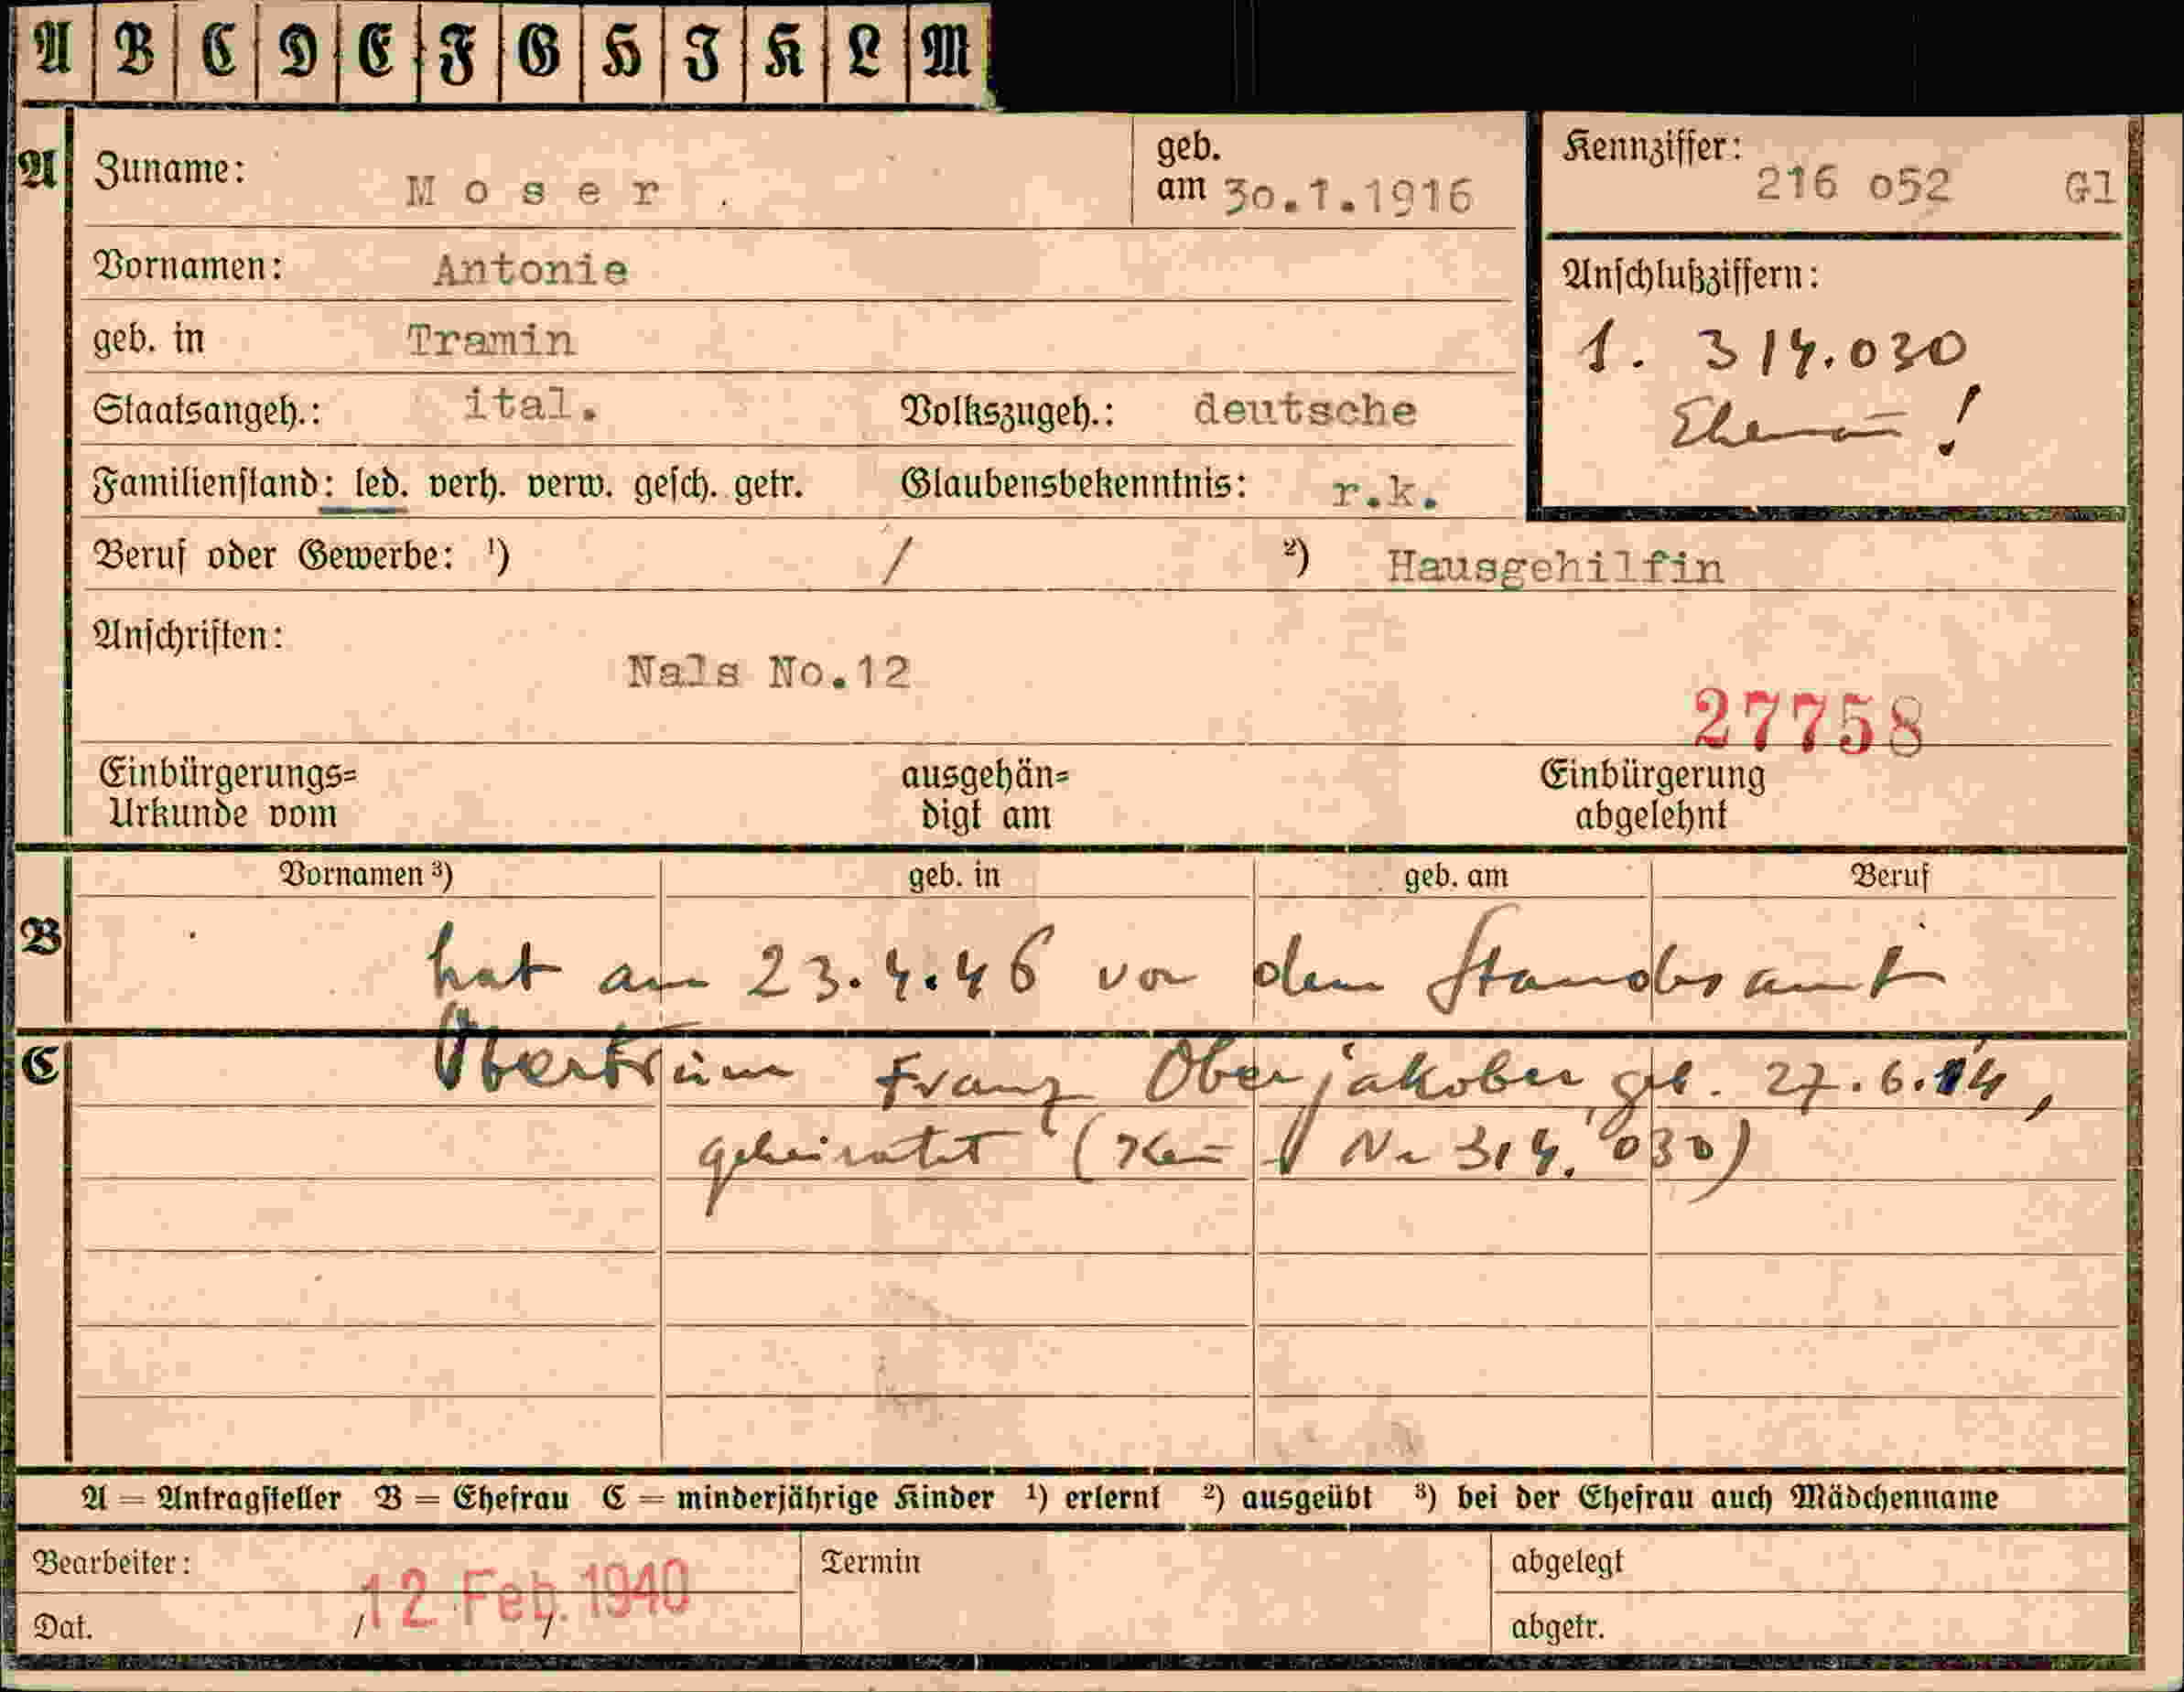 A B C D E F G H I K L M
A Zuname: Moser. geb. am 30.1.1916 Kennziffer: 216 052 Gl
Vornamen: Antonie Anschlußziffern:
geb. in Tramin 1. 314.030
Staatsangeh.: ital. Volkszugeh.: deutsche !
Familienstand: led. verh. verw. gesch. getr. Glaubensbekenntnis: r.k.
Beruf oder Gewerbe: ¹) / ²) Hausgehilfin
Anschriften:
Nals No.12
27758
Einbürgerungs= ausgehän= Einbürgerung
Urkunde vom digt am abgelehnt
Vornamen ³) geb. in geb. am Beruf
B hat am 23.4.46 vor dem Standesamt
C Obertrum Franz Oberjakober, geb. 27.6.14,
geheiratet ( Nr 314.030)
A = Antragsteller B = Ehefrau C = minderjährige Kinder ¹) erlernt ²) ausgeübt ³) bei der Ehefrau auch Mädchenname
Bearbeiter: Termin abgelegt
12 Feb. 1940
Dat. / / abgetr.